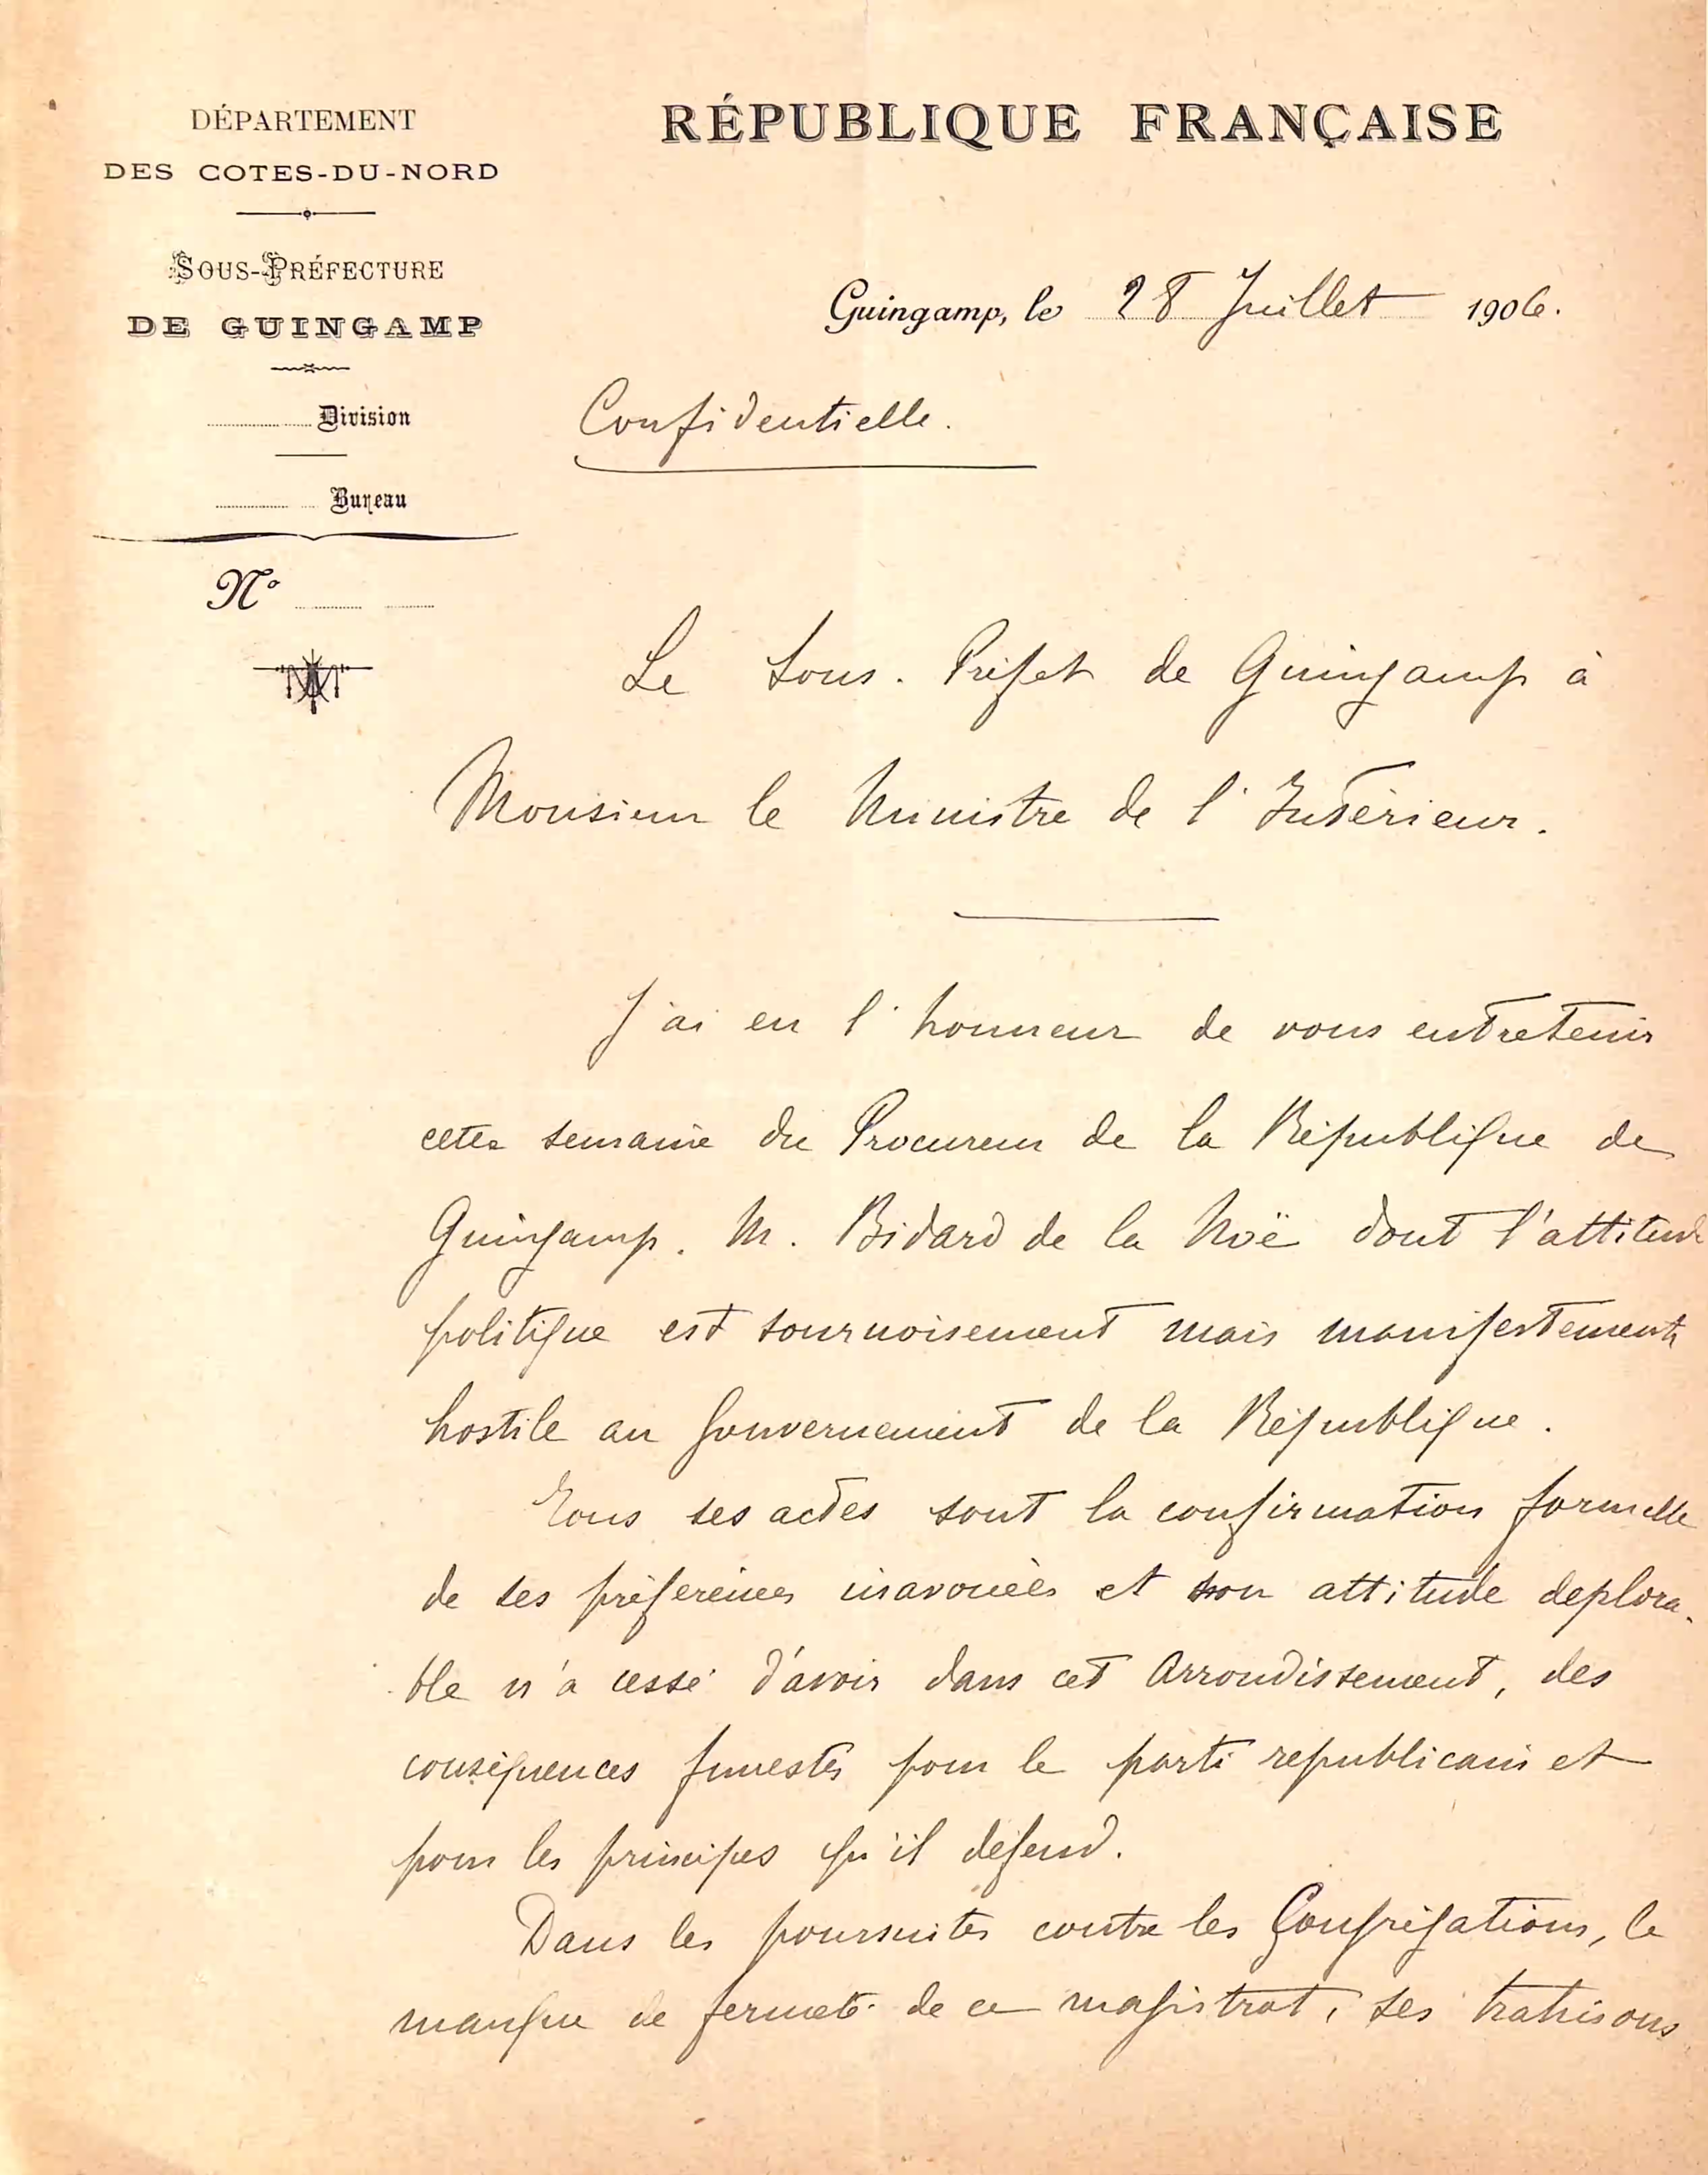 DÉPARTEMENT
DES COTES-DU-NORD
SOUS-PRÉFECTURE
DE GUINGAMP
Division
Bureau
N°
RÉPUBLIQUE FRANÇAISE
Guingamp, le 28 Juillet 1906.
Confidentielle.
Le Sous-Préfet de Guingamp à
Monsieur le Ministre de l'Intérieur.
J'ai eu l'honneur de vous entretenir
cette semaine du Procureur de la République de
Guingamp. M. Bidard de la Noë dont l'attitude
politique est sournoisement mais manifestement
hostile au Gouvernement de la République.
Tous ses actes sont la confirmation formelle
de ses préférences inavouées et son attitude déplora-
ble n'a cessé d'avoir dans cet Arrondissement, des
conséquences funestes pour le parti républicain et
pour les principes qu'il défend.
Dans les poursuites contre les Congrégations, le
manque de fermeté de ce magistrat, ses trahisons